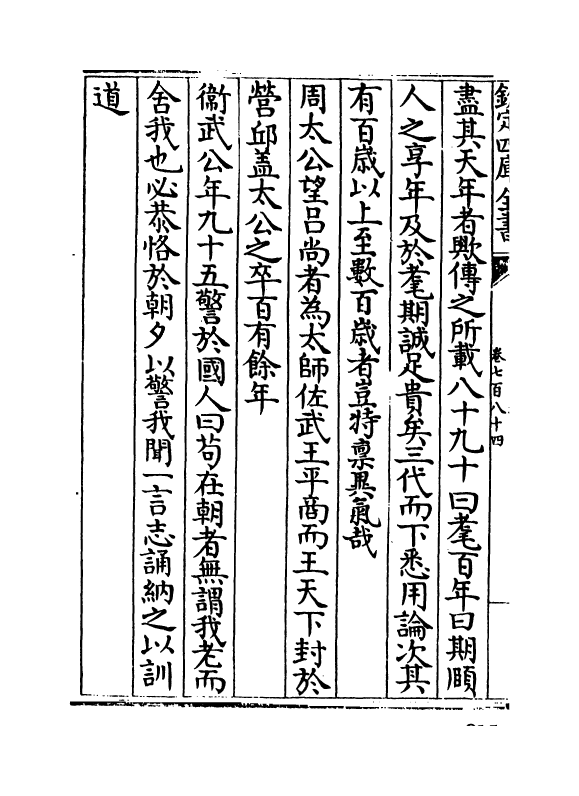 欽定四庫全書
卷七百八十四
盡其天年者歟傳之所載八十九十曰耄百年曰期頤
人之享年及於耄期誠足貴矣三代而下悉用論次其
有百歳以上至數百歳者豈特禀異氣哉
周太公望吕尚者為太師佐武王平商而王天下封於
營邱盖太公之卒百有餘年
衞武公年九十五警於國人曰苟在朝者無謂我老而
舍我也必恭恪於朝夕以警我聞一言志誦納之以訓
道